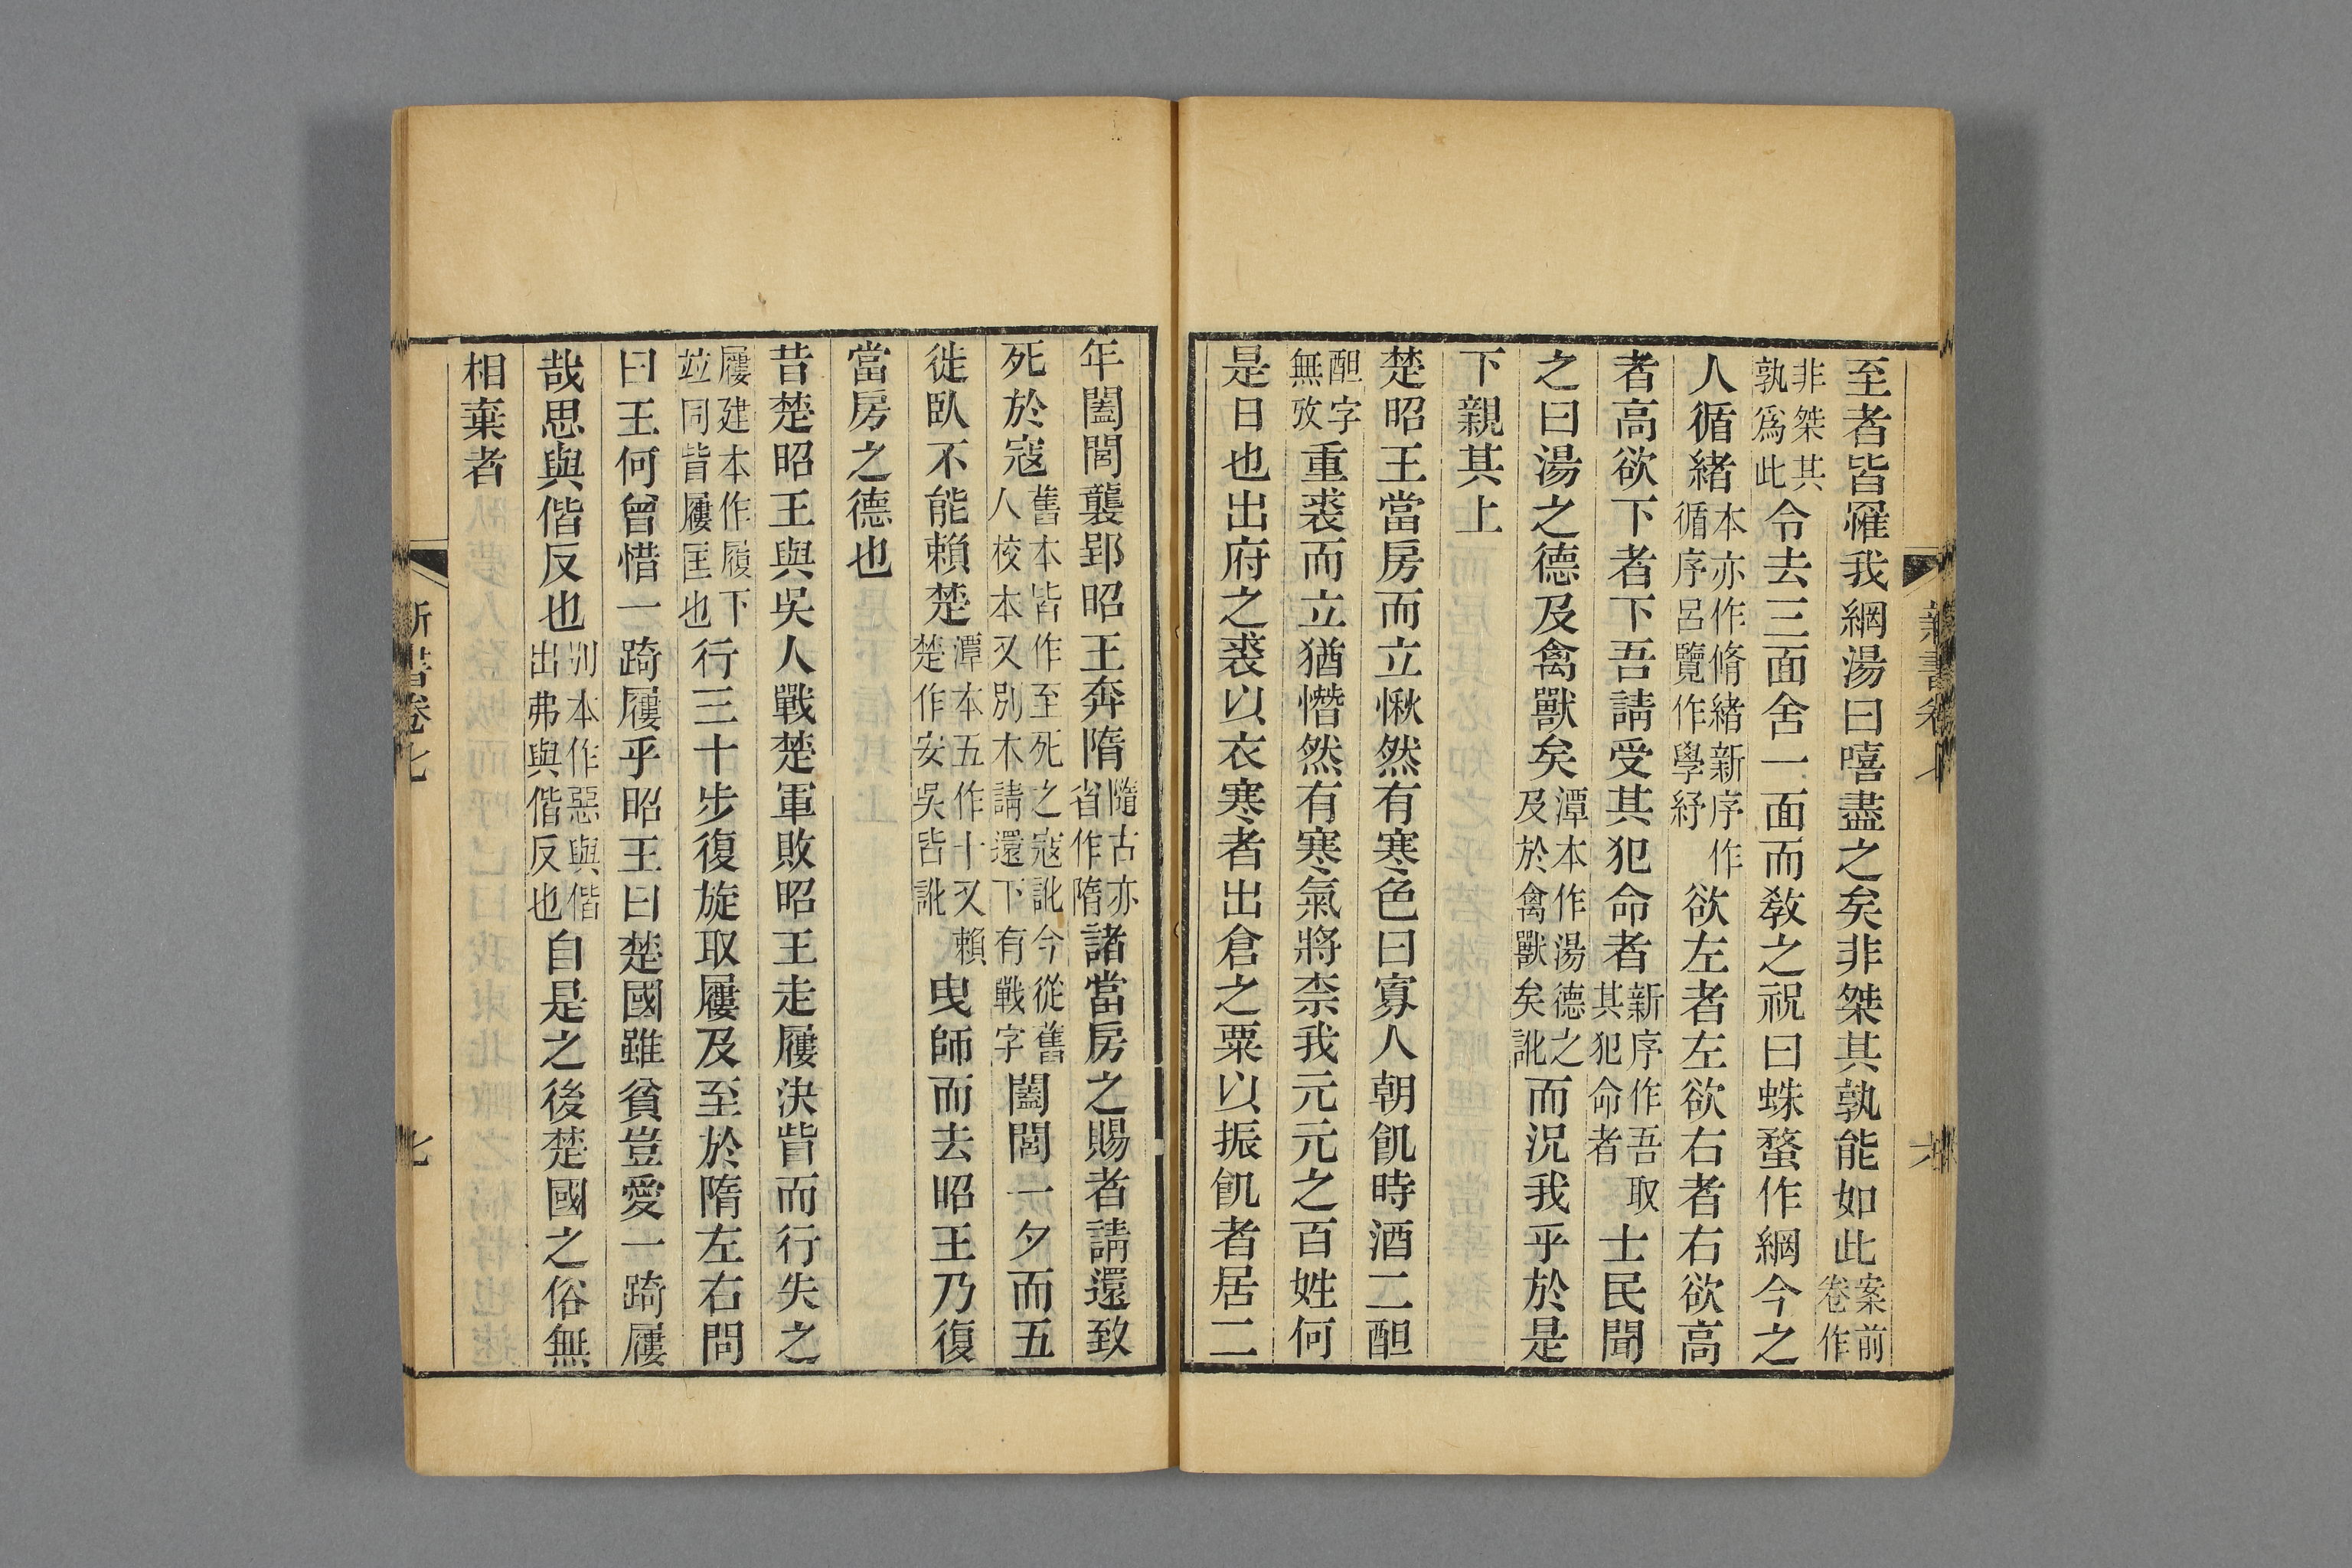 至者皆罹我網湯曰嘻盡之矣非桀其孰能如此案前卷作
非桀其孰爲此令去三面舍一面而敎之祝曰蛛蝥作網今之
人循緖本亦作脩緖新序作循序呂覽作學紓欲左者左欲右者右欲高
者高欲下者下吾請受其犯命者新序作吾取其犯命者士民聞
之曰湯之德及禽獸矣潭本作湯德之及於禽獸矣訛而況我乎於是
下親其上
楚昭王當房而立愀然有寒色曰寡人朝飢時酒二䣱
䣱字無攷重裘而立猶憯然有寒氣將柰我元元之百姓何
是日也出府之裘以衣寒者出倉之粟以振飢者居二
新書卷七
六
年闔閭襲郢昭王奔隋隨古亦省作隋諸當房之賜者請還致
死於寇舊本皆作至死之寇訛今從舊人校本又別本請還下有戰字闔閭一夕而五
徙臥不能賴楚潭本五作十又賴楚作安吳皆訛曳師而去昭王乃復
當房之德也
昔楚昭王與吳人戰楚軍敗昭王走屨決眥而行失之
屨建本作履下竝同眥屨匡也行三十步復旋取屨及至於隋左右問
曰王何曾惜一踦屨乎昭王曰楚國雖貧豈愛一踦屨
哉思與偕反也別本作惡與偕出弗與偕反也自是之後楚國之俗無
相棄者
新書卷七
七